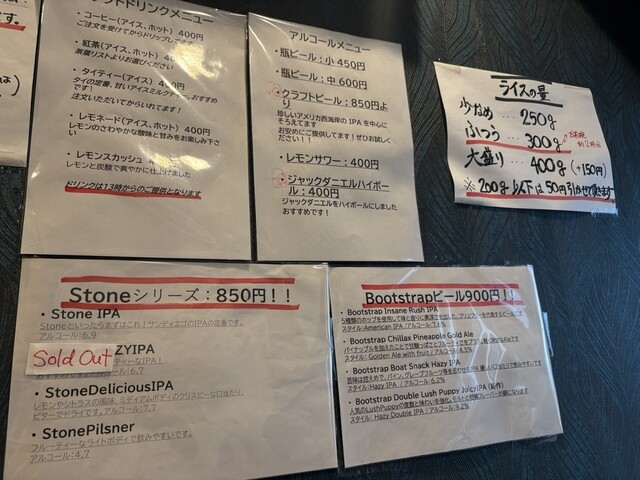 す。
フトドリンクメニュー
・コーヒー(アイス、ホット) 400円
ご注文を受けてからドリップし
・紅茶(アイス、ホット) 4
茶葉リストよりお選びください
・タイティー(アイス) 4 0円
タイの定番、甘いアイスミルクティー おすすめ
です！
注文いただいてからいれます！
・レモネード(アイス、ホット) 400円
レモンのさわやかな酸味と甘みをお楽しみ下さ
い
・レモンスカッシュ 4
レモンと炭酸で爽やかに仕上げました
ドリンクは13時からのご提供となります
アルコールメニュー
・瓶ビール：小 450円
・瓶ビール：中 600円
・クラフトビール：850円よ
り
珍しいアメリカ西海岸の IPA を中心に
そろえてます
お安めにご提供してます！ぜひお試しく
ださい！！
・レモンサワー：400円
・ジャックダニエルハイボー
ル：400円
ジャックダニエルをハイボールにしました
おすすめです！
ライスの量
少なめ … 250g
ふつう … 300g
大盛り … 400g (+150円)
※ 200g以下は50円引かせて頂きます
Stoneシリーズ：850円！！
・Stone IPA
Stoneといったらまずはこれ！サンディエゴのIPAの定番です。
アルコール:6.9
Sold Out
ZYIPA
ティーなIPA！
アルコール:6.7
・StoneDeliciousIPA
レモンやシトラスの風味、ミディアムボディのクリスピーな口当たり、
ビターでドライです。アルコール:7.7
・StonePilsner
フルーティーなライトボディで飲みやすいです。
アルコール:4.7
Bootstrapビール900円！！
・Bootstrap Insane Rush IPA
スタイル:American IPA / アルコール:7.8%
・Bootstrap Chillax Pineapple Gold Ale
スタイル: Golden Ale with fruit / アルコール:4.5%
・Bootstrap Boat Snack Hazy IPA
スタイル:Hazy IPA / アルコール:6.2%
・Bootstrap Double Lush Puppy JuicyIPA (新作)
人気のLushPuppyの度数と味わいを強化。
スタイル: Hazy Double IPA / アルコール:9.2%